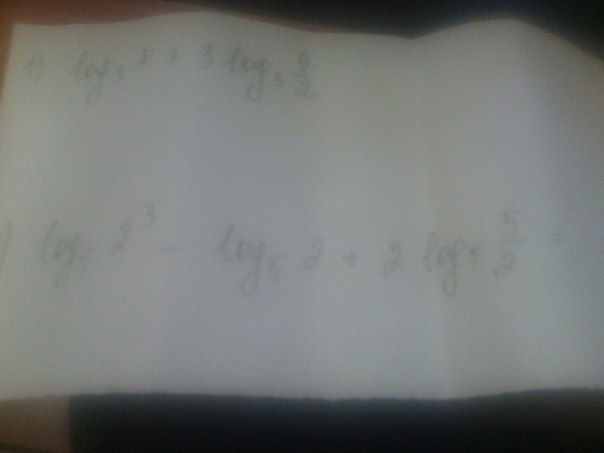 1) log₃ 8 + 3 log₃ 9/2
) log₅ 2³ - log₅ 2 + 2 log₅ 5/2 =